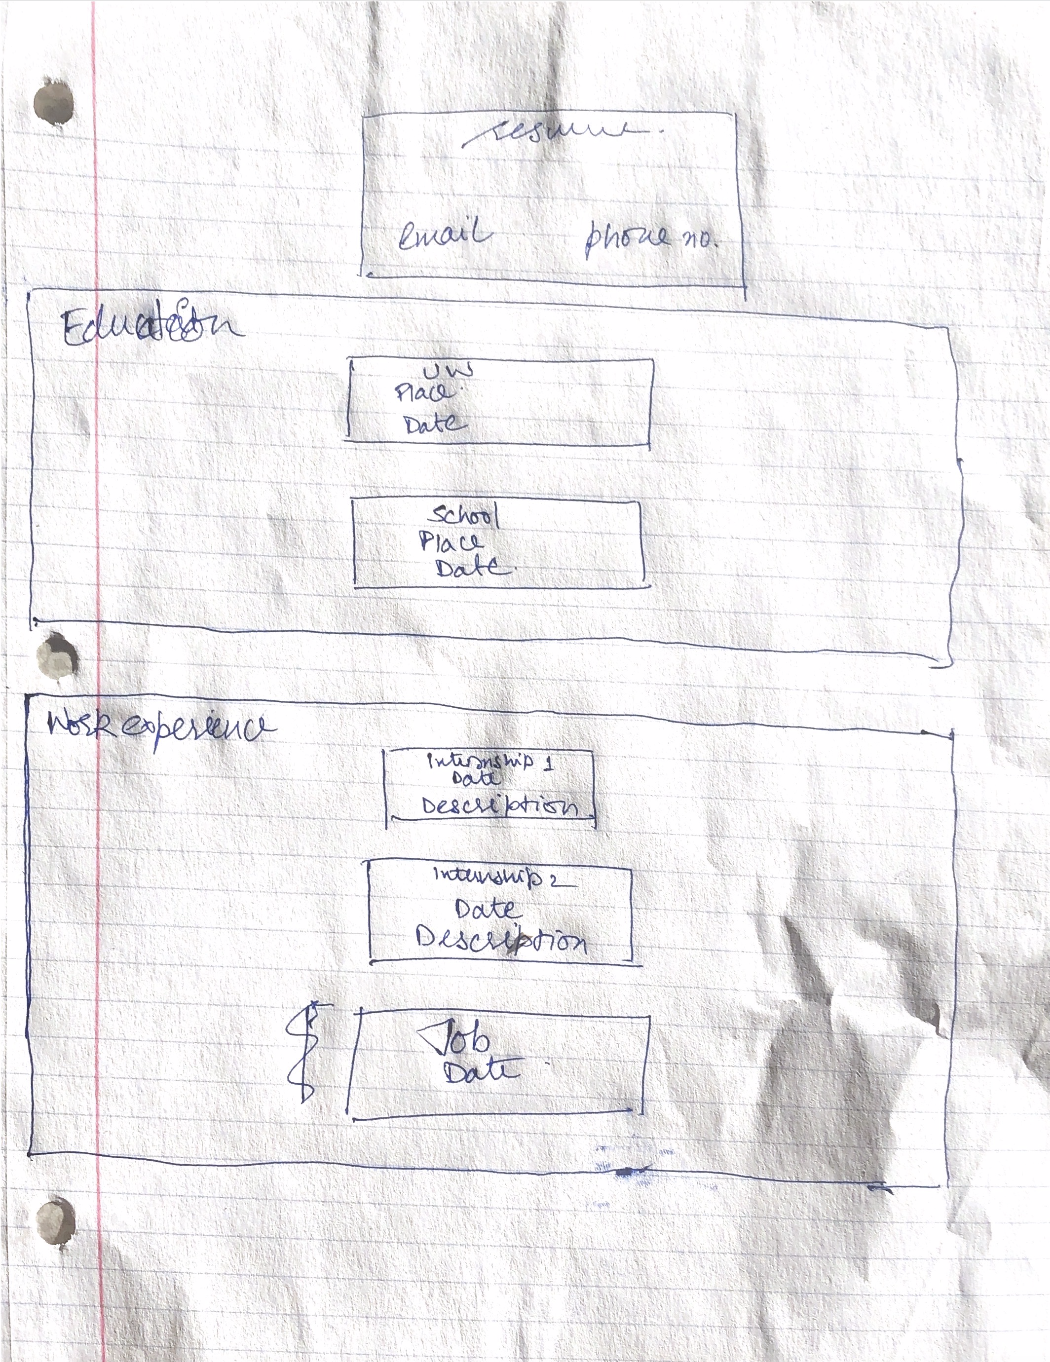 resume.
email phone no.
Education
UW
Place.
Date
School
Place
Date.
Work experience
Internship 1
Date
Description
Internship 2
Date
Description
Job
Date